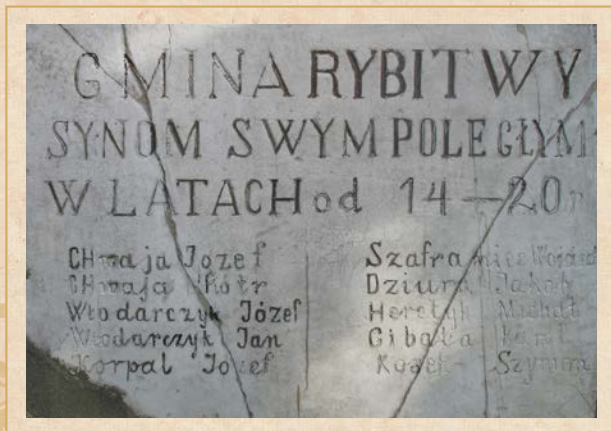 GMINA RYBITWY
SYNOM SWYM POLEGŁYM
W LATACH od 14-20r
CHwaja Józef
CHwaja Piotr
Włodarczyk Józef
Włodarczyk Jan
Korpal Józef
Szafraniec Wojciech
Dziura Jakób
Heretyk Michał
Gibała
Kosek Szymon